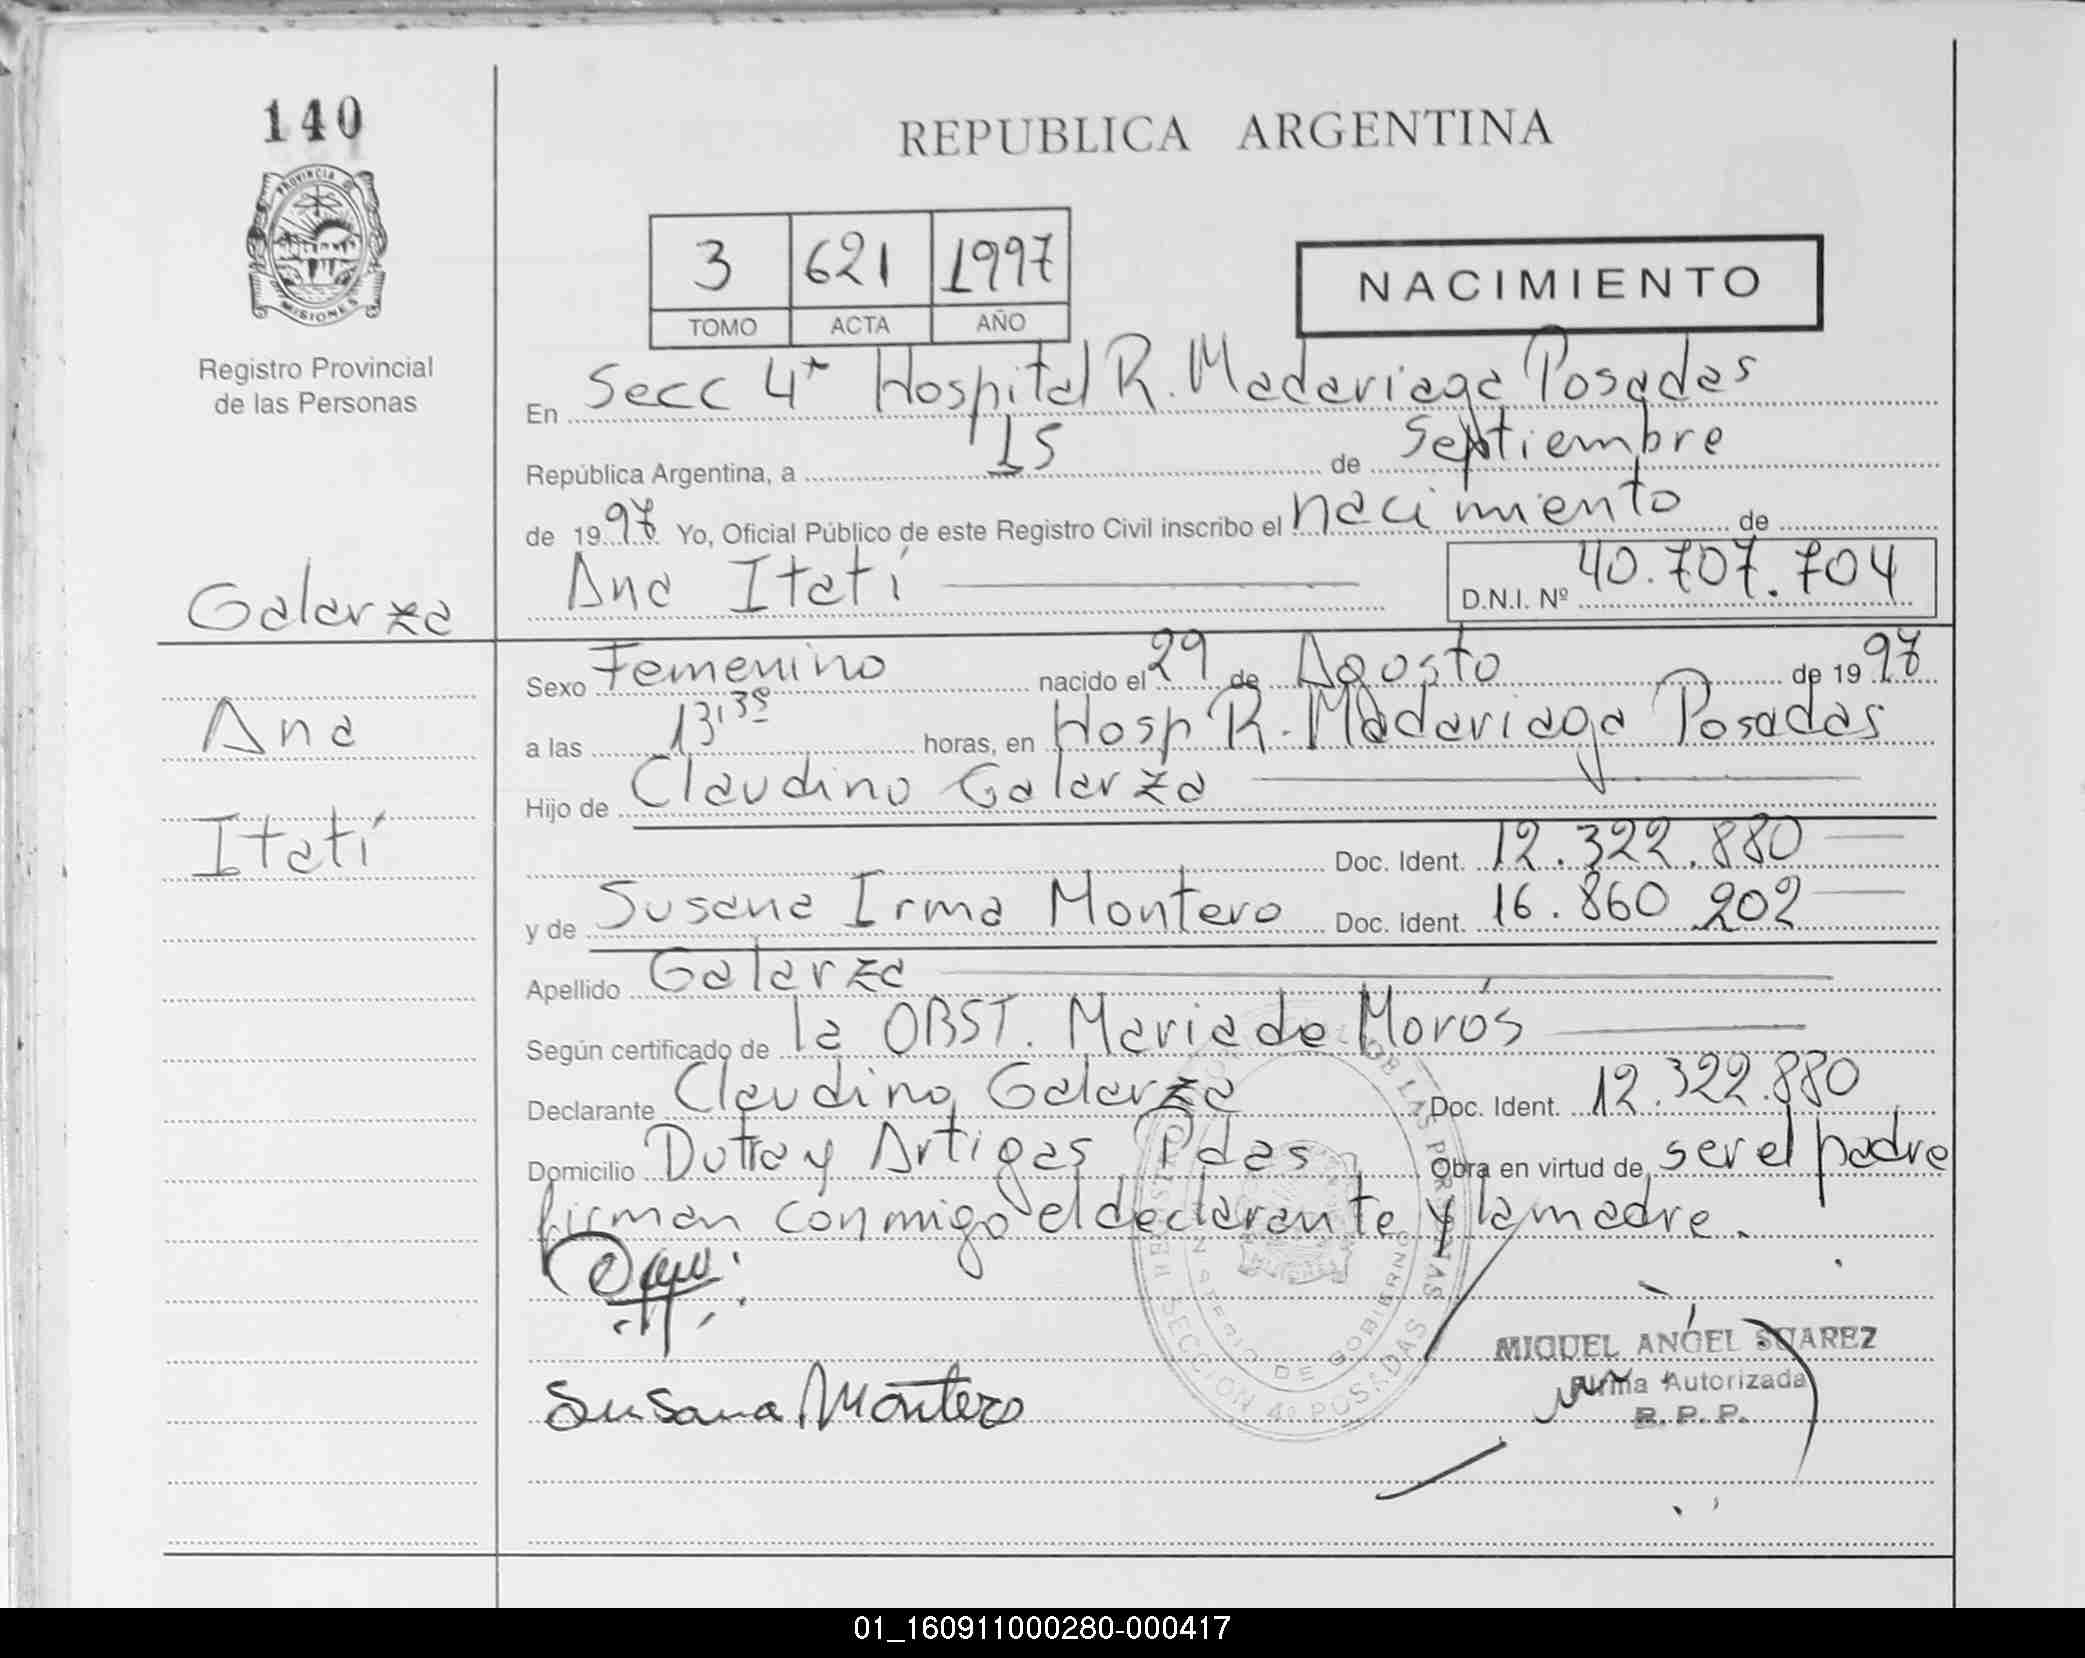 140
PROVINCIA DE
MISIONES
Registro Provincial
de las Personas
Galarza
Ana
Itatí
REPUBLICA ARGENTINA
3 621 1997
TOMO ACTA AÑO
NACIMIENTO
En Secc 4ª Hospital R. Madariaga Posadas
República Argentina, a 15 de Septiembre
de 1997 Yo, Oficial Público de este Registro Civil inscribo el nacimiento de
Ana Itatí D.N.I. Nº 40.707.704
Sexo Femenino nacido el 29 de Agosto de 1997
a las horas, en Hosp R. Madariaga Posadas
Hijo de Claudino Galarza
Doc. Ident. 12.322.880
y de Susana Irma Montero Doc. Ident. 16.860.202
Apellido Galarza
Según certificado de la OBST. Maria de Morós
Declarante Claudino Galarza Doc. Ident. 12.322.880
Domicilio Dutra y Artigas Pdas Obra en virtud de ser el padre
firman conmigo el declarante y la madre.
Susana Montero
DE LAS PERSONAS
MINISTERIO DE GOBIERNO
SECCION 4ª POSADAS
MIGUEL ANGEL SUAREZ
Firma Autorizada
R. P. P.
01_160911000280-000417